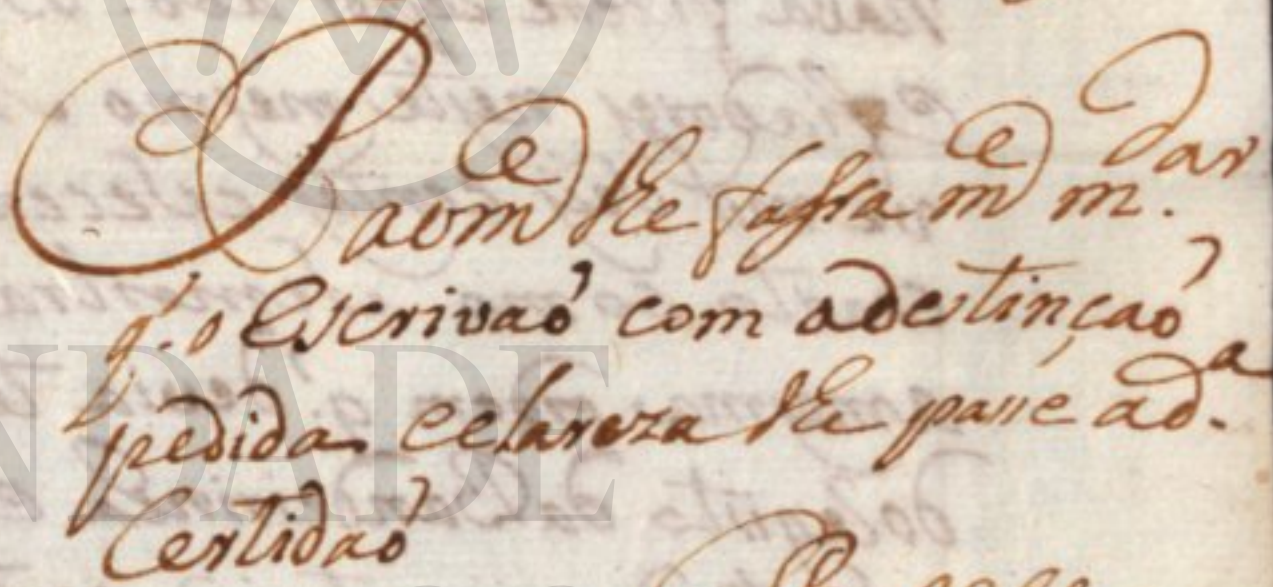 P avm^e lhe fassa m^e m.^dar
q.' o Escrivaõ com adestinçaõ
pedida eclareza lhe passe ad.^a
Certidaõ